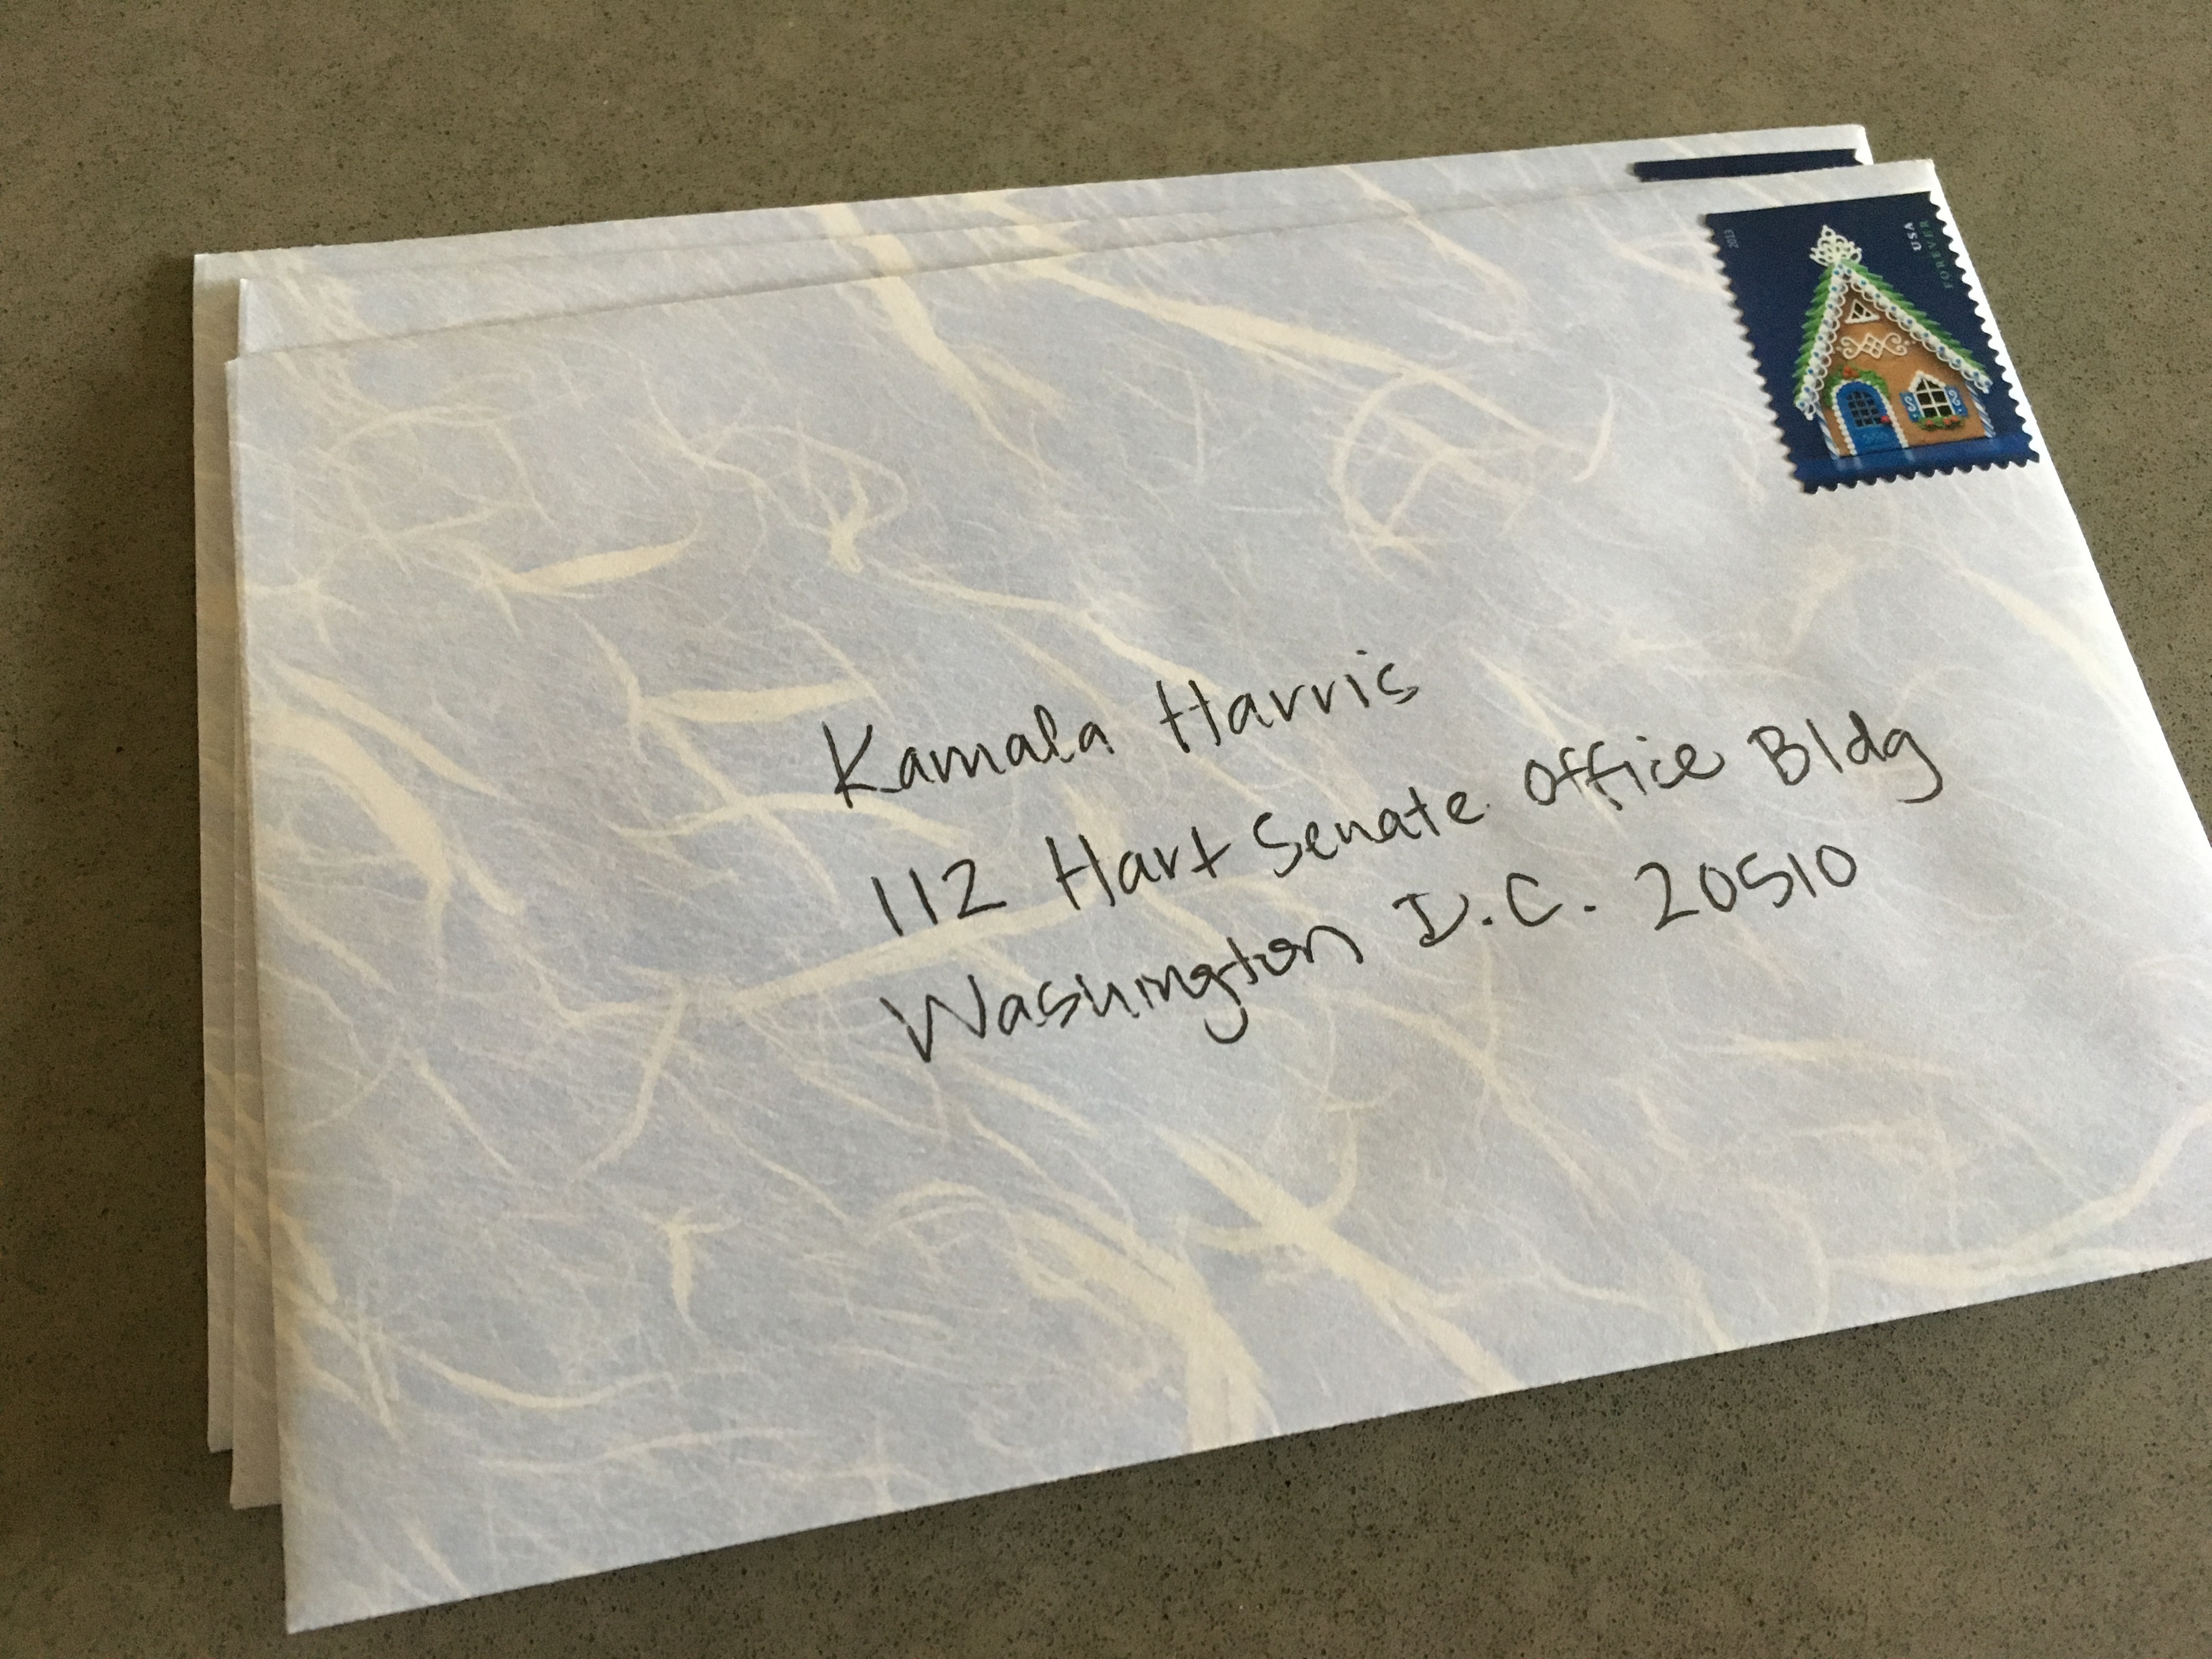 2013
USA
FOREVER
Kamala Harris
112 Hart Senate Office Bldg
Washington D.C. 20510